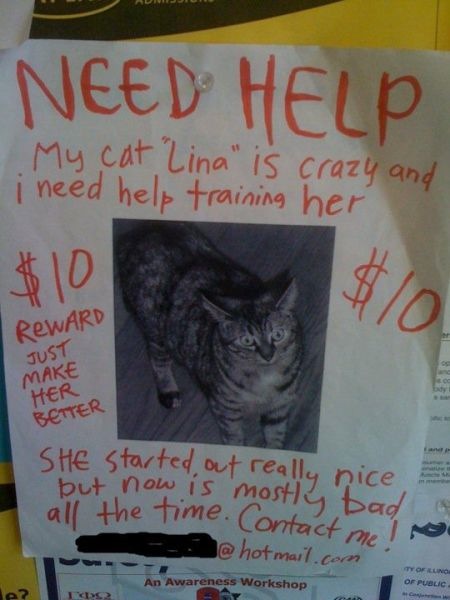 NEED HELP
My cat "Lina" is crazy and
i need help training her
$10
REWARD
JUST
MAKE
HER
BETTER
$10
SHE started out really nice
but now is mostly bad
all the time. Contact me!
@hotmail.com
An Awareness Workshop
ΓΦΩ
TY OF ILLINO
OF PUBLIC